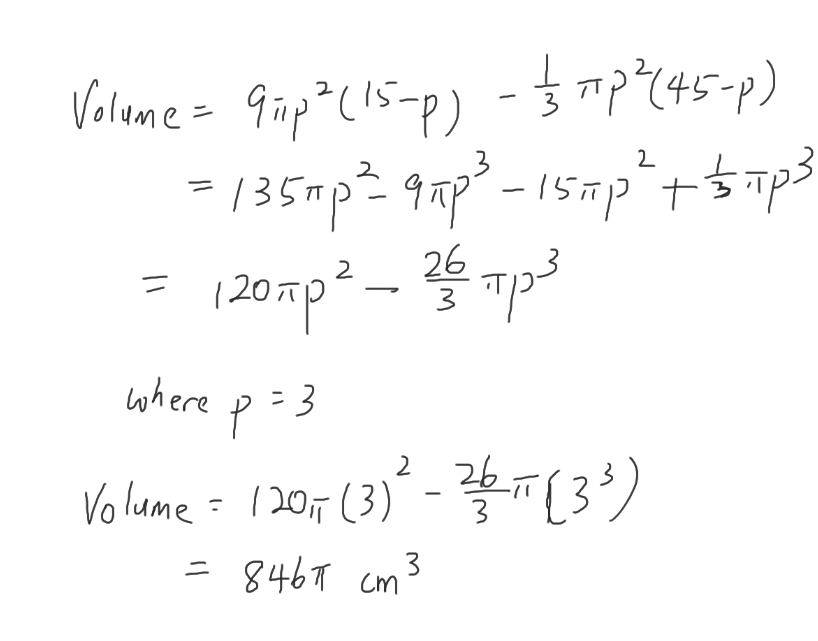 Volume = 9πp²(15-p) - 1/3 πp²(45-p)
= 135πp² - 9πp³ - 15πp² + 1/3 πp³
= 120πp² - 26/3 πp³
where p = 3
Volume = 120π(3)² - 26/3 π(3³)
= 846π cm³